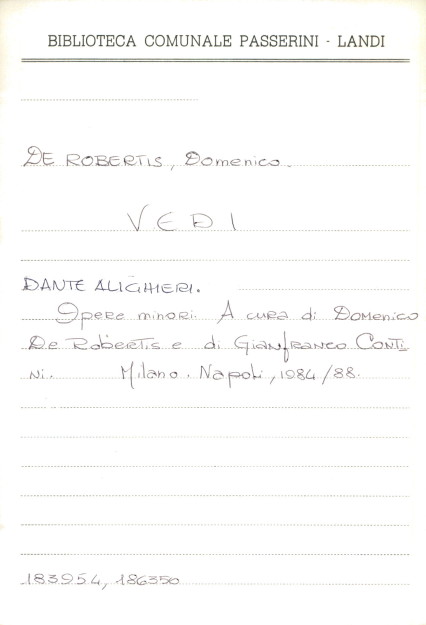 BIBLIOTECA COMUNALE PASSERINI - LANDI
DE ROBERTIS, Domenico.
VEDI
DANTE ALIGHIERI.
Opere minori. A cura di Domenico
De Robertis e di Gianfranco Conti
ni. Milano. Napoli, 1984/88.
183954, 186350